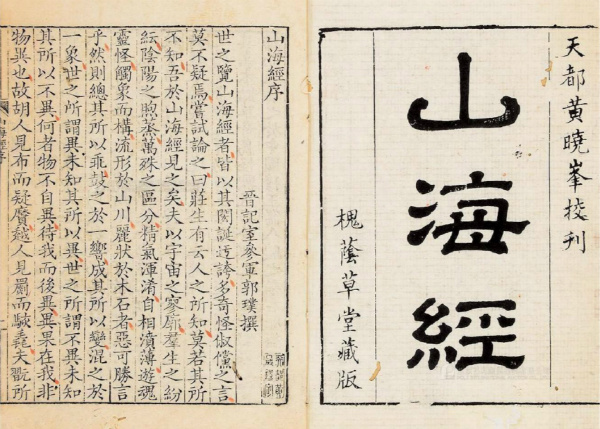 天都黄曉峯挍刊
山海經
槐蔭草堂藏版
山海經序
晉記室參軍郭璞撰
世之覽山海經者皆以其閎誕迂誇多奇怪俶儻之言
莫不疑焉嘗試論之曰莊生有云人之所知莫若其所
不知吾於山海經見之矣夫以宇宙之寥廓群生之紛
紜陰陽之煦蒸萬殊之區分精氣渾淆自相濆薄遊魂
靈怪觸象而構流形於山川麗狀於木石者惡可勝言
乎然則總其所以乖鼓之於一響成其所以變混之於
一象世之所謂異未知其所以異世之所謂不異未知
其所以不異何者物不自異待我而後異異果在我非
物異也故胡人見布而疑黂越人見罽而駭毳夫翫所